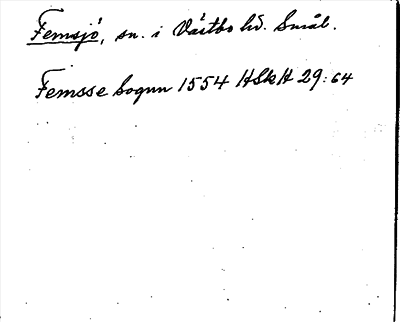 Femsjö, sn. i Västbo hd. Smål.
Femsse sognn 1554 HSkH 29:64